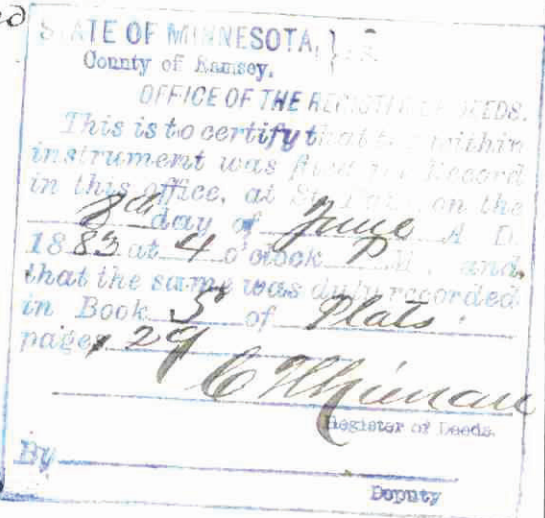 STATE OF MINNESOTA, } SS.
County of Ramsey.
OFFICE OF THE REGISTER OF DEEDS.
This is to certify that the within
instrument was filed for Record
in this office, at St. Paul, on the
day of June A D.
1883 at 4 o'clock P M. and
that the same was duly recorded
in Book 5 of Plats
page, 29
Register of Deeds.
By
Deputy